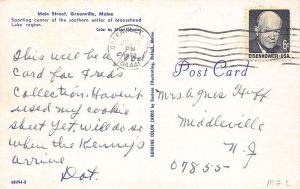 Main Street, Greenville, Maine
Sporting center of the southern outlet of Moosehead
Lake region.
Color by
This will be a
card for Fred's
Collection. Haven't
used my cookie
sheet yet, will do so
when the Kenny's
arrive
Dot.
68494-B
GENUINE COLOR CARDS by Eastern Illustrating,
PM
EISENHOWER·USA
6c
Post Card
Mrs Agnes Huff
Middleville
N. J
07855
M.G.L